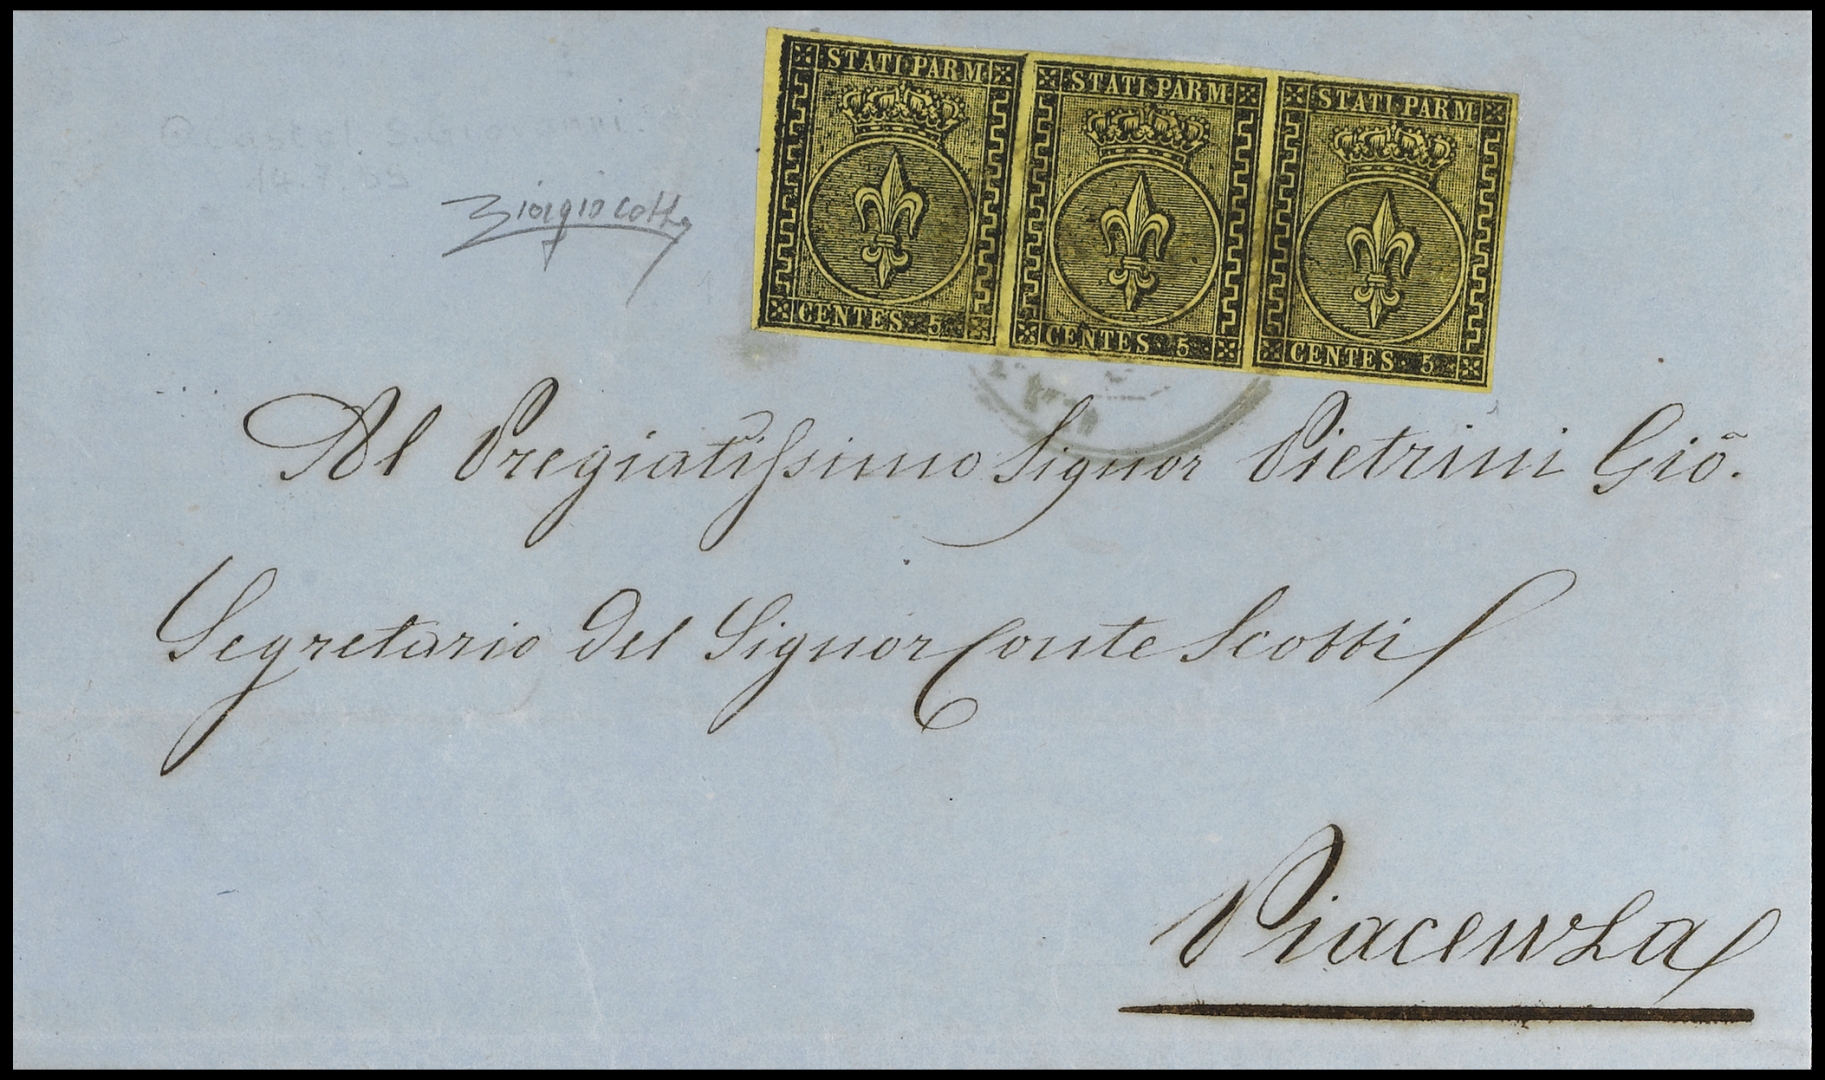 STATI PARM STATI PARM STATI PARM
CENTES 5 CENTES 5 CENTES 5
14.7.
Al Pregiatissimo Signor Pietrini Gio.
Segretario del Signor Conte Scotti
Piacenza